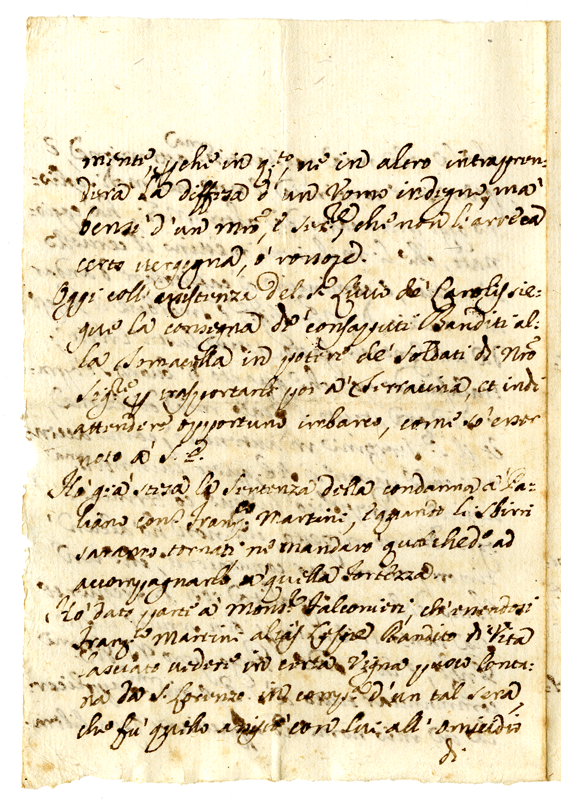 mente, p che in q.to, ne in altro intrapren-
derà la diffesa d' un Uomo indegno, mà
bensì d' un mro, è ser.re, che non li arreca
certo vergogna, ò rossore.
Oggi coll' assistenza del S.r Livio de Carolis sie-
gue la consegna de consaputi Banditi al-
la Somacella in potere de soldati di Nro
Sig.re p trasportarli poi à Terracina, et indi
attendere opportuno imbarco, come sò esser
noto à S.E.
Hò già stesa la sentenza della condanna à Pa-
liano con Fran.co Martini, e quando li sbirri
saranno tornati ne mandarò qualched.o ad
accompagnarlo à quella fortezza.
Hò dato parte à Mons.r Falconieri, ch' essendosi
Fran.co Martini alias Bandito di Vita
lasciato vedere in certa Vigna poco lonta-
na da S. Lorenzo in comp.a d' un tal Serra,
che fù quello con lui all' omicidio
di